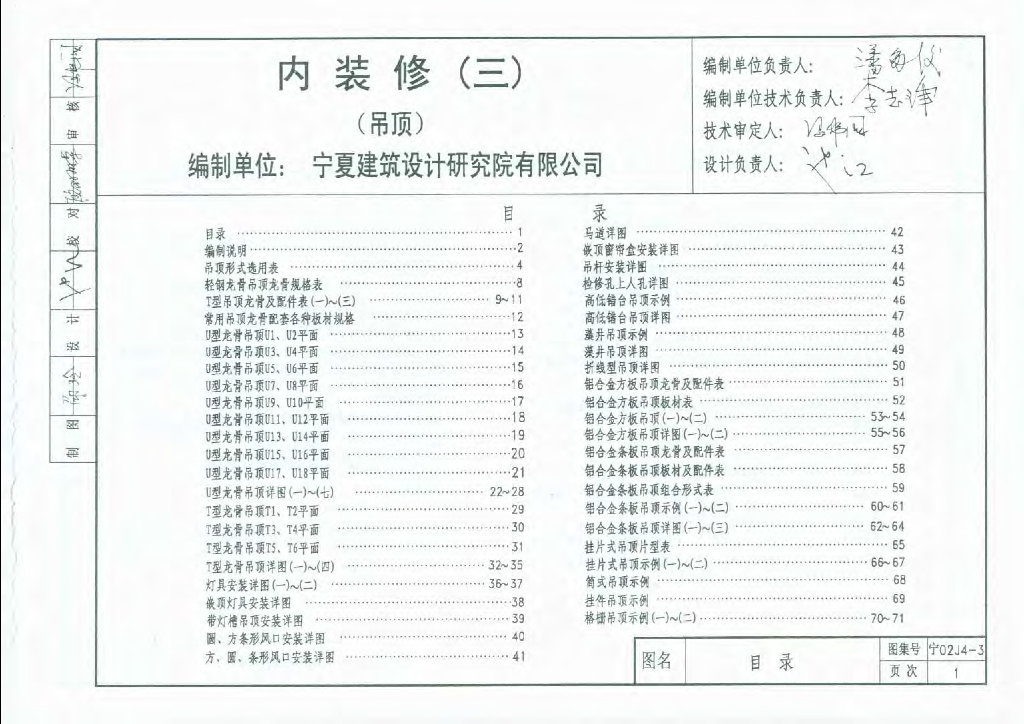 内装修(三)
(吊顶)
编制单位: 宁夏建筑设计研究院有限公司
编制单位负责人:
编制单位技术负责人:
技术审定人:
设计负责人:
目 录
目录 1
编制说明 2
吊顶形式选用表 4
轻钢龙骨吊顶龙骨规格表 8
T型吊顶龙骨及配件表(一)~(三) 9~11
常用吊顶龙骨配套各种板材规格 12
U型龙骨吊顶U1、U2平面 13
U型龙骨吊顶U3、U4平面 14
U型龙骨吊顶U5、U6平面 15
U型龙骨吊顶U7、U8平面 16
U型龙骨吊顶U9、U10平面 17
U型龙骨吊顶U11、U12平面 18
U型龙骨吊顶U13、U14平面 19
U型龙骨吊顶U15、U16平面 20
U型龙骨吊顶U17、U18平面 21
U型龙骨吊顶详图(一)~(七) 22~28
T型龙骨吊顶T1、T2平面 29
T型龙骨吊顶T3、T4平面 30
T型龙骨吊顶T5、T6平面 31
T型龙骨吊顶详图(一)~(四) 32~35
灯具安装详图(一)~(二) 36~37
嵌顶灯具安装详图 38
带灯槽吊顶安装详图 39
圆、方条形风口安装详图 40
方、圆、条形风口安装详图 41
马道详图 42
嵌顶窗帘盒安装详图 43
吊杆安装详图 44
检修孔上人孔详图 45
高低错台吊顶示例 46
高低错台吊顶详图 47
藻井吊顶示例 48
藻井吊顶详图 49
折线型吊顶详图 50
铝合金方板吊顶龙骨及配件表 51
铝合金方板吊顶板材表 52
铝合金方板吊顶(一)~(二) 53~54
铝合金方板吊顶详图(一)~(二) 55~56
铝合金条板吊顶龙骨及配件表 57
铝合金条板吊顶板材及配件表 58
铝合金条板吊顶组合形式表 59
铝合金条板吊顶示例(一)~(二) 60~61
铝合金条板吊顶详图(一)~(三) 62~64
挂片式吊顶片型表 65
挂片式吊顶示例(一)~(二) 66~67
筒式吊顶示例 68
挂件吊顶示例 69
格栅吊顶示例(一)~(二) 70~71
图名 目 录 图集号 宁02J4-3
页次 1
审核
校对
设计
制图